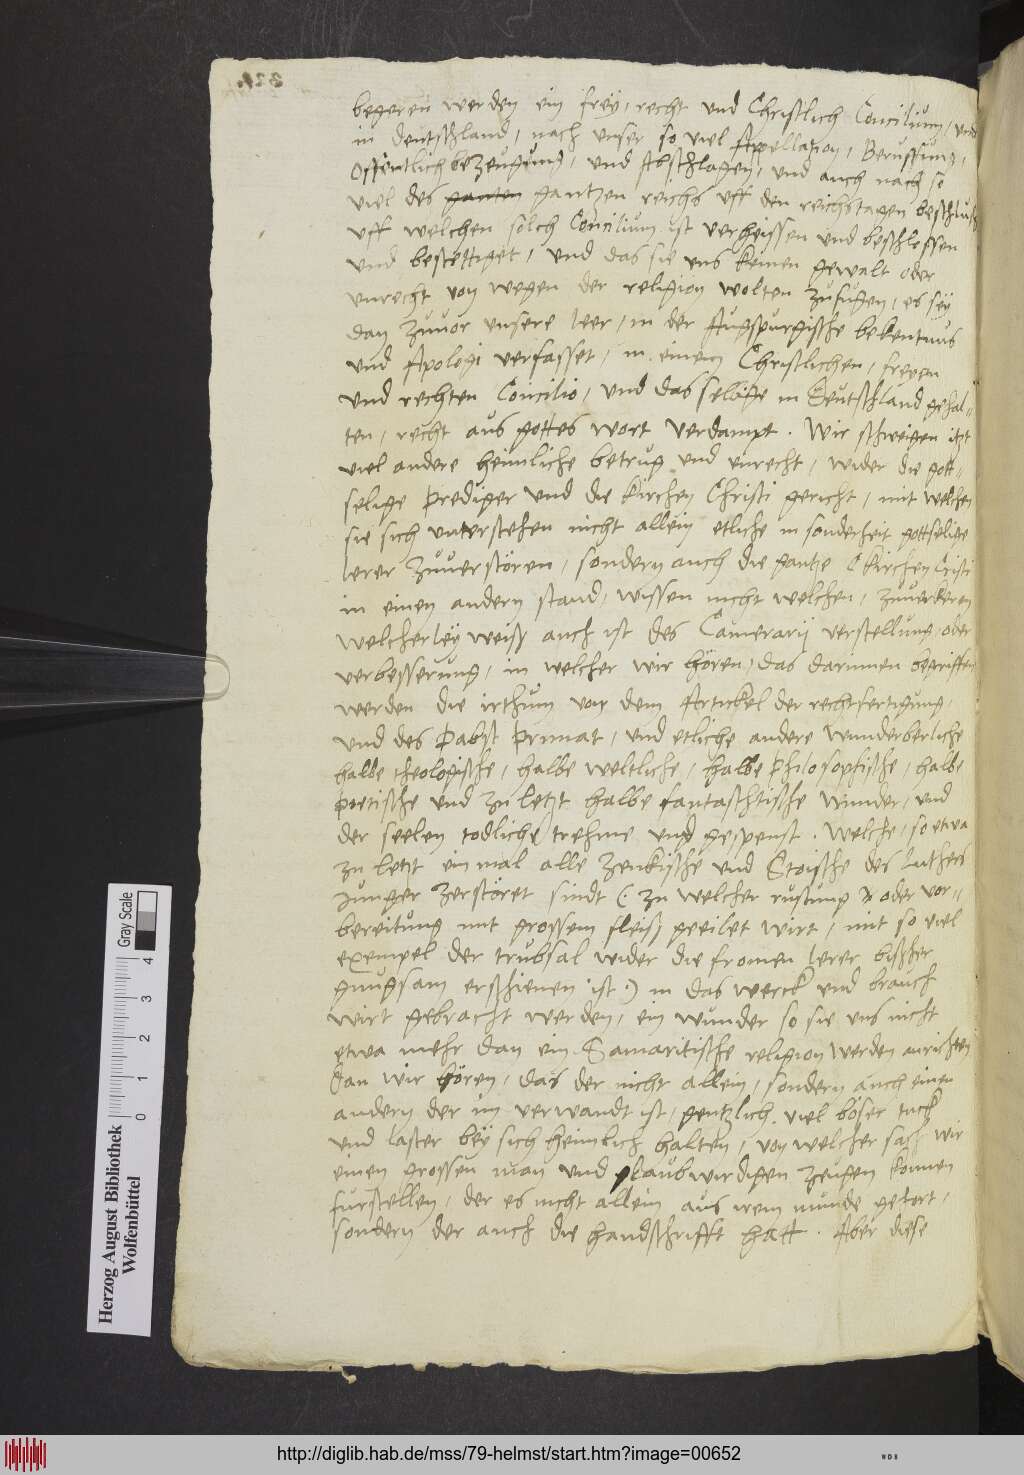 begeren werden ein frey, recht und Christlich Concilium, und
in deutschland, nach unser so viel Appellation, Beruffung,
Offentlich bezeugung, und Abschlagen, und auch nach so
viel des ganten gantzen reichs uff den reichstagen beschlus
uff welchen solch Concilium ist verheissen und beschlossen
und bestettiget, und das sie uns keinen gewalt oder
unrecht von wegen der religion wolten zufugen, es sey
dan zuvor unsere leer, in der Augspurgische bekentnus
und Apologi verfasset, in einem Christlichen, freyen
und rechten Concilio, und das selbige in Deutschland gehal-
ten, recht aus gottes wort verdampt. Wir schweigen itzt
viel andere heimliche betrug und unrecht, wider die gott-
selige prediger und die kirchen Christi gericht, mit welchen
sie sich unterstehen nicht allein etliche in sonderheit gottselige
lerer zuverstören, sondern auch die gantze kirchen Cristi
in einen andern stand, wissen nicht welchen, zuverkeren
welcherley weiß auch ist des Camerarij verstellung oder
verbesserung, in welcher wir hören, das darinnen begriffen
werden die irthum von dem Artickel der rechtfertigung,
und des Pabst Primat, und etliche andere wunderberliche
halbe theologische, halbe weltliche, halbe philosophische, halbe
poetische und zu letzt halbe fantaschtische wunder, und
der seelen todliche trehme und gespenst. Welche, so etwa
zu letzt ein mal alle zenkische und Stoische des Luthers
Junger zerstöret sindt (: zu welcher rustung oder vor-
bereitung mit grossem fleiß geeilet wirt, mit so viel
exempel der trubsal wider die fromen lerer bißher
gnugsam erschienen ist :) in das werck und brauch
wirt gebracht werden, ein wunder so sie uns nicht
etwa mehr dan ein Samaritische religion werden anrichten
Dan wir hören, das der nicht allein, sondern auch einen
andern der im verwandt ist, gentzlich viel böser tuck
und laster bey sich heimlich halten, von welcher sach wir
einen grossen man und glaubwirdigen zeugen konnen
furstellen, der es nicht allein aus irem munde gehort,
sondern der auch die handschrifft hatt. Aber diese
Herzog August Bibliothek
Wolfenbüttel
Gray Scale
0 1 2 3 4
http://diglib.hab.de/mss/79-helmst/start.htm?image=00652